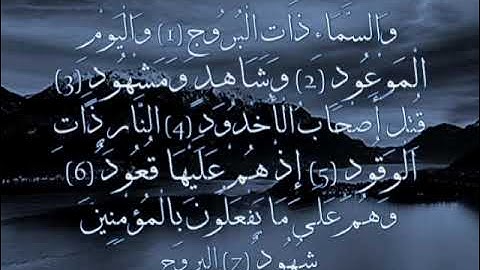 وَالسَّمَاءِ ذَاتِ الْبُرُوجِ (1) وَالْيَوْمِ
الْمَوْعُودِ (2) وَشَاهِدٍ وَمَشْهُودٍ (3)
قُتِلَ أَصْحَابُ الْأُخْدُودِ (4) النَّارِ ذَاتِ
الْوَقُودِ (5) إِذْ هُمْ عَلَيْهَا قُعُودٌ (6)
وَهُمْ عَلَى مَا يَفْعَلُونَ بِالْمُؤْمِنِينَ
شُهُودٌ (7) البروج